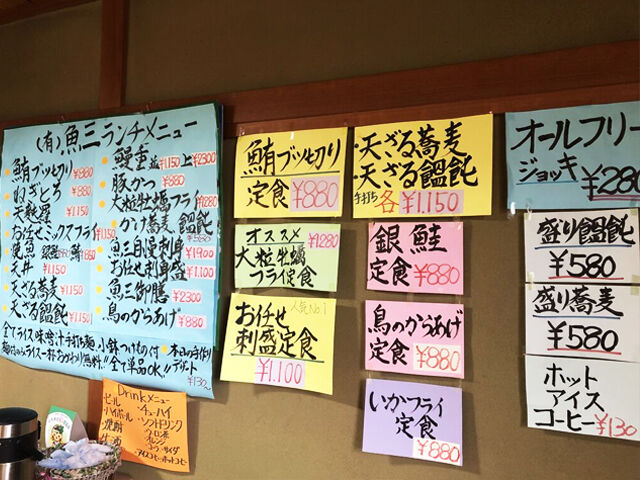 (有)魚三ランチメニュー
鮪ブツ切り ¥880
ねぎとろ ¥880
天麩羅 ¥1150
お任せミックスフライ ¥1150
焼魚 銀鮭 ¥880
天丼 ¥1150
天ざる蕎麦 ¥1150
天ざる饂飩 ¥1150
鰻重 並¥1,150 上¥2300
豚かつ ¥880
大粒牡蠣フライ
かけ蕎麦 饂飩
魚三自慢刺身 ¥1900
お任せ刺身盛 ¥1,100
魚三御膳 ¥2300
鳥のからあげ ¥880
全てライス味噌汁手打ち麺小鉢つけもの付
麺付のみライス一杯おかわり無料!!全て単品OK!!
本日の手作り
デザート ¥130
Drinkメニュー
・ビール
・ハイボール
・焼酎
・チューハイ
・ソフトドリンク
ウーロン茶
オレンジ
コーラ・サイダー
鮪ブツ切り
定食 ¥880
オススメ ¥1280
大粒牡蠣
フライ定食
お任せ 人気No.1
刺盛定食
¥1.100
・天ざる蕎麦
・天ざる饂飩
手打ち 各 ¥1.150
銀鮭
定食 ¥880
鳥のからあげ
定食 ¥880
いかフライ
定食 ¥880
オールフリー
ジョッキ
¥280
盛り饂飩
¥580
盛り蕎麦
¥580
ホット
アイス
コーヒー ¥130